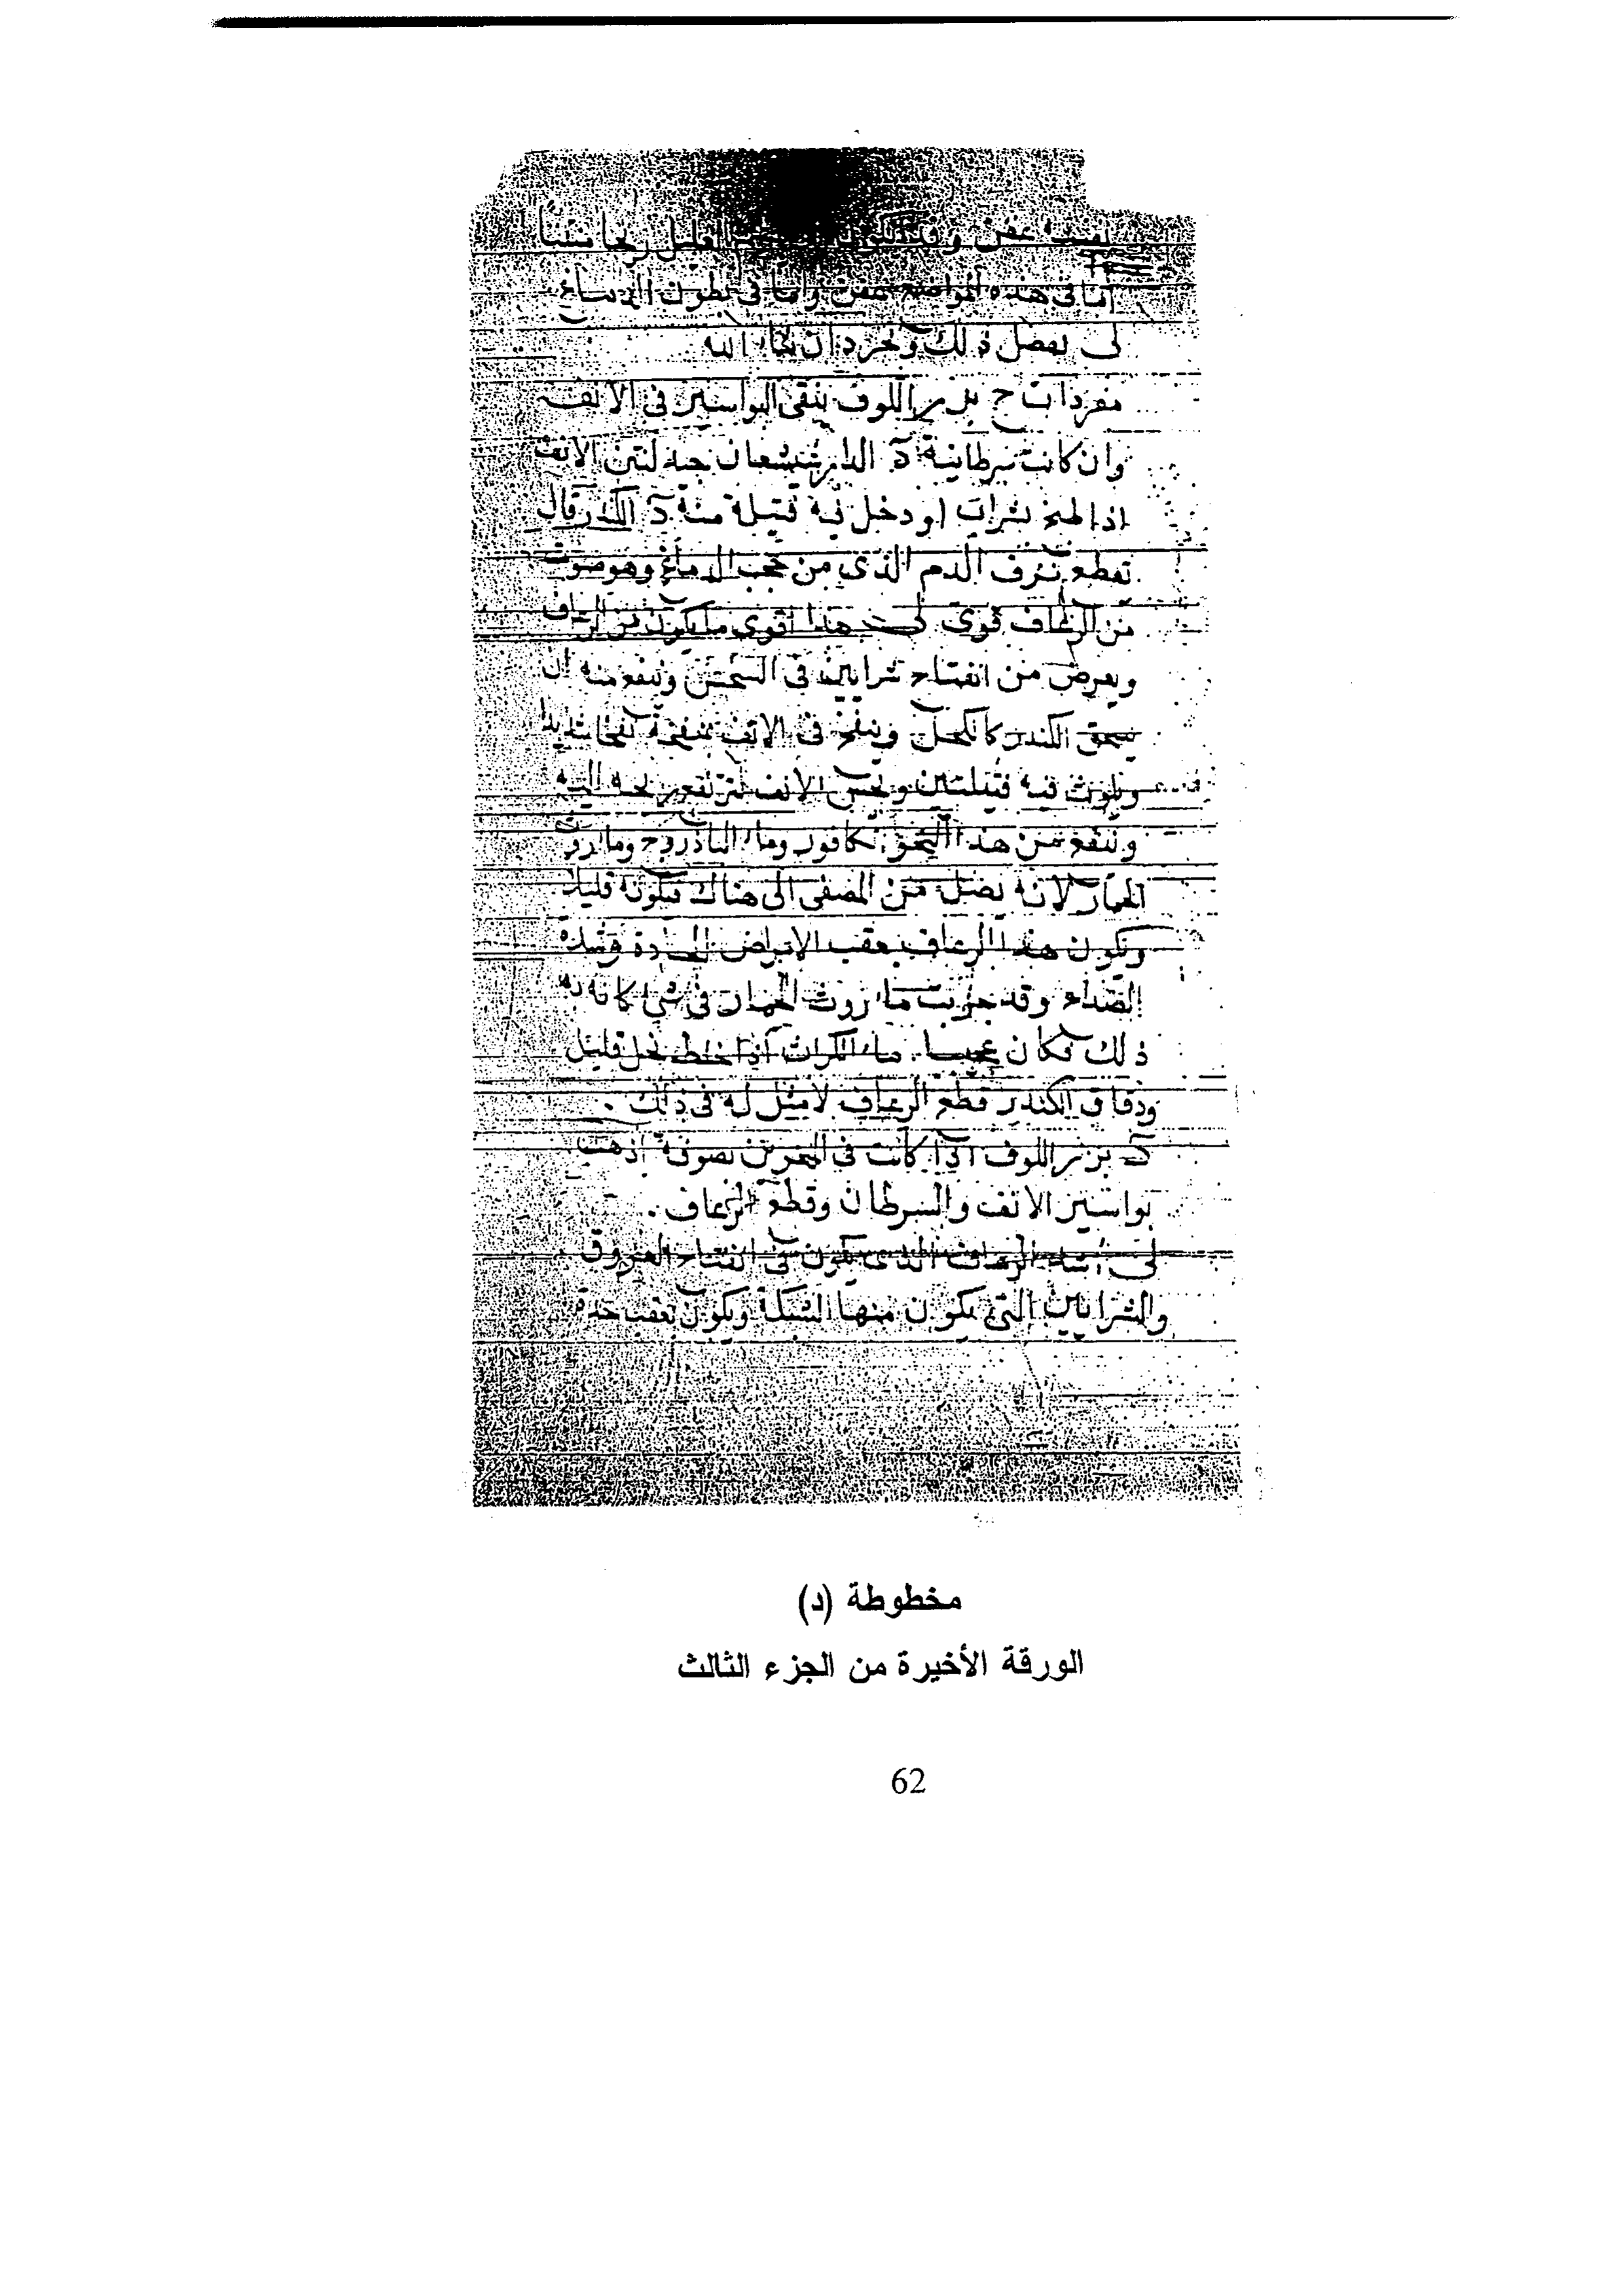 عفن العليل ريحا منتنا
اما في هذه المواضع عفن واما في بطون الدماغ
لى يفصل ذلك ويحرر ان شاء الله
مفردات ج بزر اللوف ينقى البواسير فى الانف
وان كانت سرطانية د الدارشيشعان جيد لنتن الانف
اذا طبخ بشراب او دخل فيه فتيلة منه د الكندر قال
تقطع نزف الدم الذى من حجب الدماغ وهو
من الرعاف قوى لى هذا اقوى ما يكون من الرعاف
ويعرض من انفتاح شرايين فى وينفع منه ان
يسحق الكندر كالكحل وينفخ فى الانف نفخا شديدا
ويلوث فيه فتيلتين الانف
وينفع من هذا كافور وماء الباذروج وماء روث
الحمار لانه يصل من المصفى الى هناك قليلا
ويكون هذا الرعاف بعقب الامراض الحادة
الصداع وقد جربت ماء روث الحمار فى
ذلك فكان عجيبا ماء الكراث اذا خلط بخل قليل
ودقاق الكندر قطع الرعاف لا مثل له فى ذلك .
د بزر اللوف اذا كانت فى بصوفة اذهبت
بواسير الانف والسرطان وقطع الرعاف .
لى الرعاف الذى يكون فى انفتاح العروق
والشرايين التى يكون منها الشبكة ويكون بعقب حدة
مخطوطة (د)
الورقة الأخيرة من الجزء الثالث
62